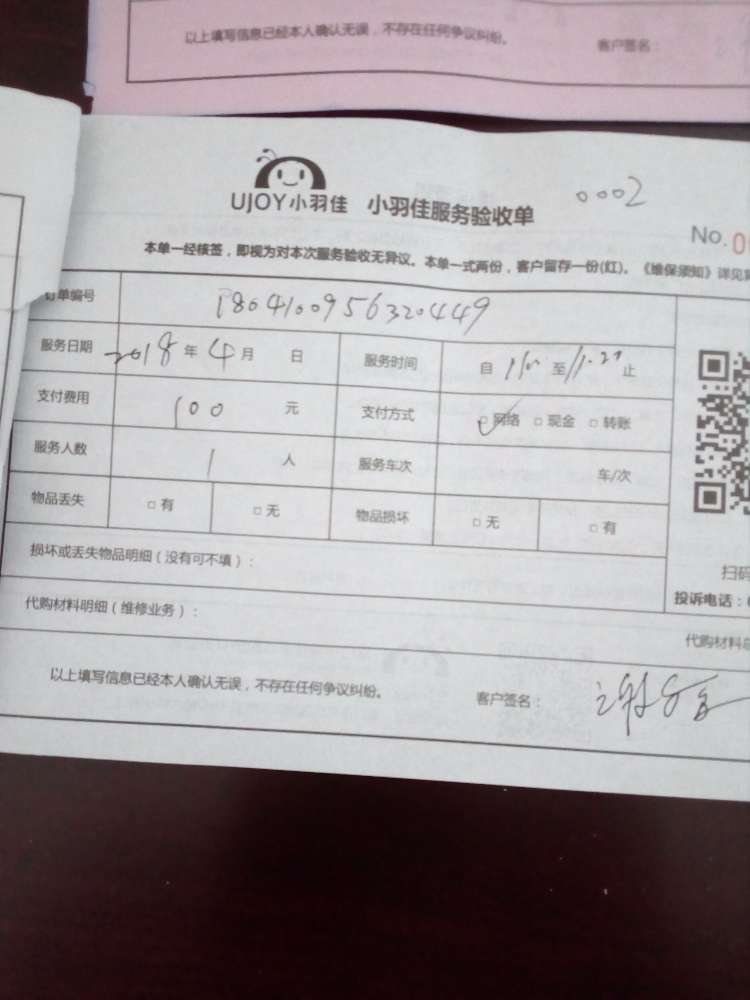 以上填写信息已经本人确认无误，不存在任何争议纠纷。 客户签名：
UJOY小羽佳 小羽佳服务验收单 0002
No.0
本单一经核签，即视为对本次服务验收无异议。本单一式两份，客户留存一份(红)。《维保须知》详见
订单编号 1804100956320449
服务日期 2018年4月 日 服务时间 自 至 止
支付费用 100 元 支付方式 □网络 □现金 □转账
服务人数 1 人 服务车次 车/次
物品丢失 □有 □无 物品损坏 □无 □有
损坏或丢失物品明细（没有可不填）：
扫码
投诉电话：
代购材料明细（维修业务）：
代购材料
以上填写信息已经本人确认无误，不存在任何争议纠纷。 客户签名：